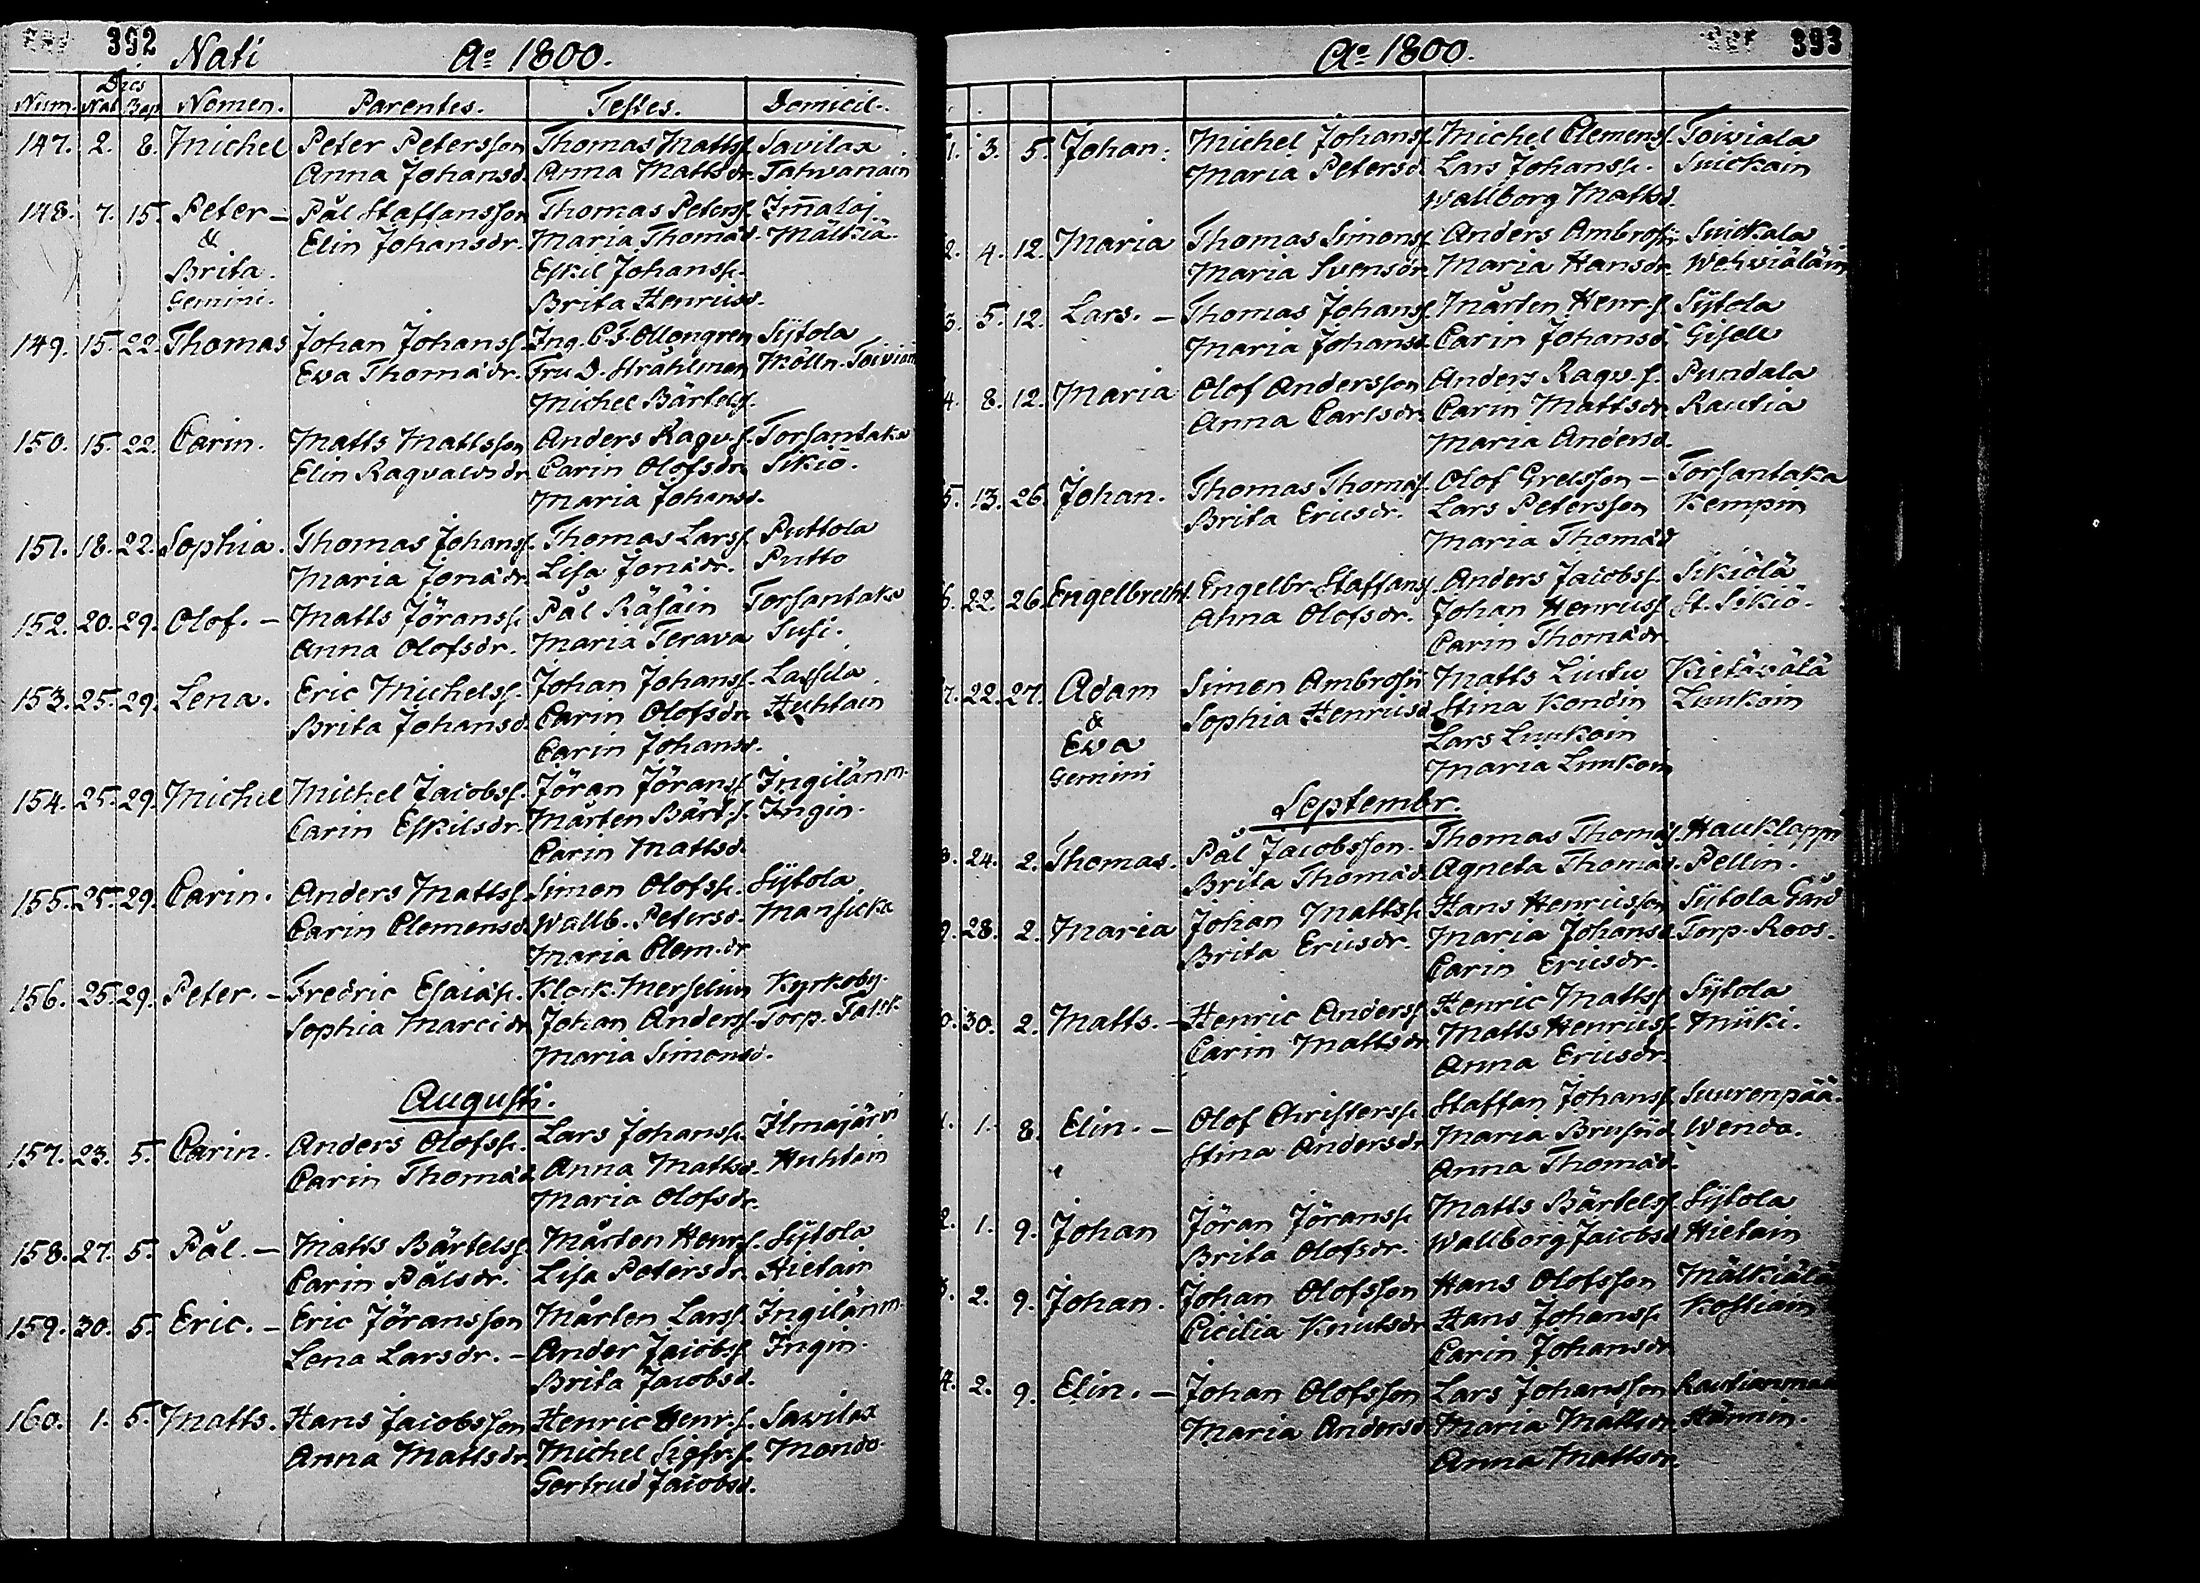 392 Nati Aº 1800.
Dies
Num. Nat. Bap. Nomen. Parentes. Testes. Domicil.
147. 2. 8. Michel Peter Petersson Thomas Mattss. Savilax
Anna Johansd. Anna Mattsdr. Tatwanain
148. 7. 15. Peter – Pål Staffansson Thomas Peterss. Im̄alaj.
& Elin Johansdr. Maria Thomæd. Mälkiä.
Brita. Eskil Johanss.
Gemini. Brita Henricsd.
149. 15. 22. Thomas Johan Johanss. Ing. C. F. Ollongren Sÿtola
Ewa Thomædr. Fru D. Stråhlman Mölln. Toiviain
Michel Bärtelss.
150. 15. 22. Carin. Matts Mattsson Anders Ragv. s. Torsantaka
Elin Ragvalsdr. Carin Olofsdr. Sikiö.
Maria Johansd.
151. 18. 22. Sophia. Thomas Johanss. Thomas Larss. Puttola
Maria Jonædr. Lisa Jonædr. Putto
152. 20. 29. Olof. – Matts Jöranss. Pål Räsäin Torsantaka
Anna Olofsdr. Maria Terava Susi.
153. 25. 29. Lena. Eric Michelss. Johan Johanss. Lassila
Brita Johansd. Carin Olofsdr. Huhtain
Carin Johansd.
154. 25. 29. Michel Michel Jacobss. Jöran Jöranss. Ingilänm.
Carin Eskilsdr. Mårten Bärt. s. Ingin.
Carin Mattsd.
155. 25. 29. Carin. Anders Mattss. Simon Olofss. Sÿtola
Carin Clemensd. Wallb. Petersd. Mansicka
Maria Clem. dr
156. 25. 29. Peter. – Fredric Esaiæs. Klock. Merselius Kyrkoby.
Sophia Marci dr. Johan Anderss. Torp. Falck
Maria Simonsd.
Augusti.
157. 23. 5. Carin. Anders Olofss. Lars Johanss. Ilmajärvi
Carin Thomæd. Anna Mattsd. Huhtain
Maria Olofsdr.
158. 27. 5. Pål. – Matts Bärtelss. Mårten Henr. s. Sÿtola
Carin Pålsdr. Lisa Petersdr. Hietain
159. 30. 5. Eric. – Eric Jöransson Mårten Larss. Ingilänm.
Lena Larsdr. – Ander Jacobss. Ingin.
Brita Jacobsd.
160. 1. 5. Matts. Hans Jacobsson Henric Henr. s. Savilax
Anna Mattsdr. Michel Sigfr. s. Mondo.
Gertrud Jacobsd.
Aº 1800. 393
1. 3. 5. Johan. Michel Johanss. Michel Clemenss. Toiviala
Maria Petersd. Lars Johanss. Suickain
Wallborg Mattsd.
2. 4. 12. Maria Thomas Simonss. Anders Ambrosii Suickala
Maria Svensdr. Maria Hansdr. Wehviäläin
3. 5. 12. Lars. – Thomas Johanss. Mårten Henr. s. Sÿtola
Maria Johansd. Carin Johansd.
4. 8. 12. Maria Olof Andersson Anders Ragv. s. Pundala
Anna Carlsdr. Carin Mattsdr. Rautia
Maria Andersd.
5. 13. 26. Johan. Thomas Thomæs. Olof Grelsson – Torsantaka
Brita Ericsdr. Lars Petersson Kempin
Maria Thomæd
6. 22. 26. Engelbrecht. Engelbr. Staffanss. Anders Jacobss. Sikiölä
Anna Olofsdr. Johan Henricss. St. Sikiö.
Carin Thomædr.
7. 22. 27. Adam Simon Ambrosii Matts Liutu Kietävälä
& Sophia Henricsd. Stina Kondin Liukoin
Ewa Lars Liukoin
Gemini Maria Liukoin
Septembr.
8. 24. 2. Thomas. Pål Jacobsson. Thomas Thomæs. Hauklappi
Brita Thomæd. Agneta Thomæd. Pellin.
9. 28. 2. Maria Johan Mattss. Hans Henricsson Sÿtola Gård
Brita Ericsdr. Maria Johansd. Torp. Roos.
Carin Ericsdr.
0. 30. 2. Matts. – Henric Anderss. Henric Mattss. Sÿtola
Carin Mattsdr. Matts Henricss. Miiki.
Anna Ericsdr.
1. 1. 8. Elin. – Olof Christerss. Staffan Johanss. Suurenpää.
Stina Andersdr. Maria Brusiid. Wenda.
Anna Thomæd.
2. 1. 9. Johan Jöran Jöranss. Matts Bärtelss. Sÿtola
Brita Olofsdr. Wallborg Jacobsd. Hietain
3. 2. 9. Johan. Johan Olofsson Hans Olofsson Mälkiälä
Cicilia Knutsdr. Hans Johanss. Kostiain
Carin Johansdr.
4. 2. 9. Elin. – Johan Olofsson Lars Johansson Rautianmaa
Maria Andersd. Maria Mattsdr.
Anna Mattsdr.